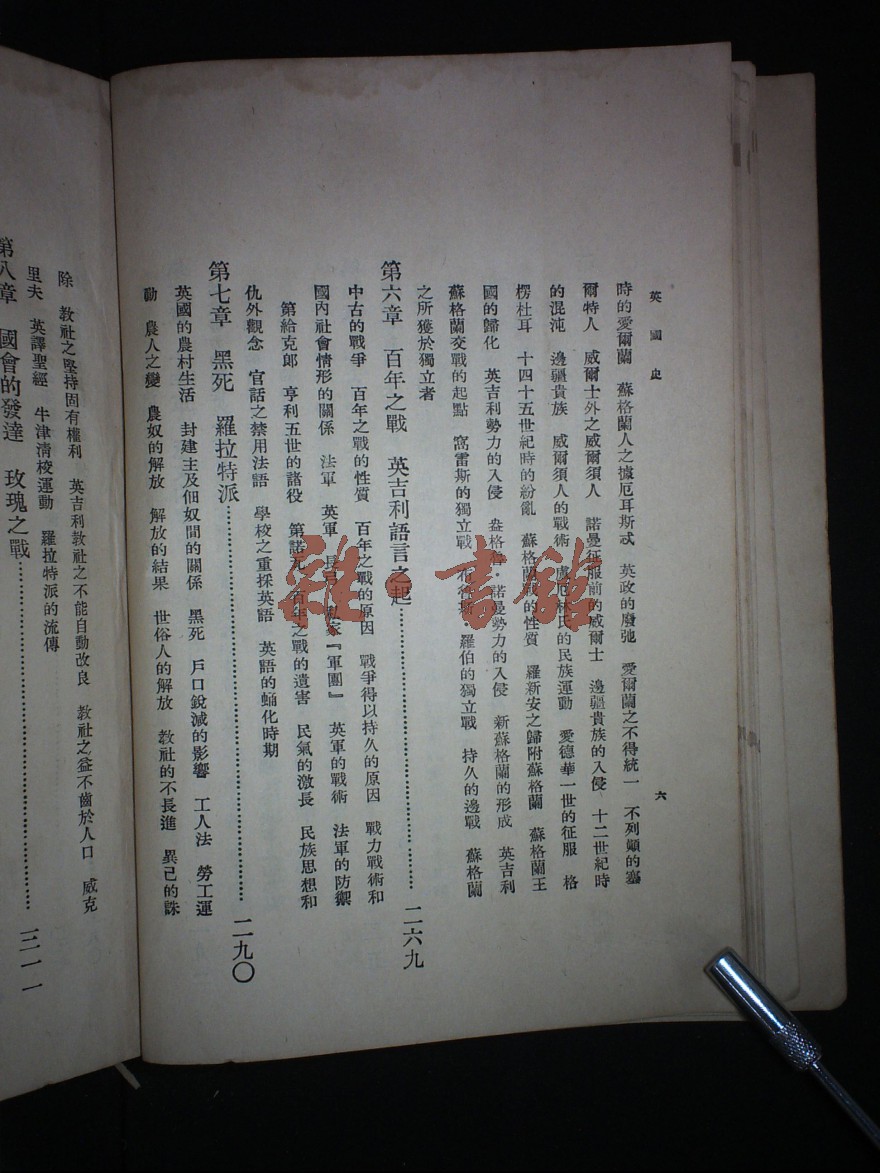 英國史
六
時的愛爾蘭 蘇格蘭人之據厄耳斯忒 英政的廢弛 愛爾蘭之不得統一 不列顛的塞
爾特人 威爾士外之威爾須人 諾曼征服前的威爾士 邊疆貴族的入侵 十二世紀時
的混沌 邊疆貴族 威爾須人的戰術 盧厄林氏的民族運動 愛德華一世的征服 格
楞杜耳 十四十五世紀時的紛亂 蘇格蘭戰的性質 羅新安之歸附蘇格蘭 蘇格蘭王
國的歸化 英吉利勢力的入侵 盎格魯·諾曼勢力的入侵 新蘇格蘭的形成 英吉利
蘇格蘭交戰的起點 窩雷斯的獨立戰 羅伯的獨立戰 持久的邊戰 蘇格蘭
之所獲於獨立者
第六章 百年之戰 英吉利語言之起…………二六九
中古的戰爭 百年之戰的性質 百年之戰的原因 戰爭得以持久的原因 戰力戰術和
國內社會情形的關係 法軍 英軍 長弓 私家『軍團』 英軍的戰術 法軍的防禦
第給克郎 亨利五世的諸役 第諾瓦 百年之戰的遺害 民氣的激長 民族思想和
仇外觀念 官話之禁用法語 學校之重採英語 英語的蛹化時期
第七章 黑死 羅拉特派…………二九〇
英國的農村生活 封建主及佃奴間的關係 黑死 戶口銳減的影響 工人法 勞工運
動 農人之變 農奴的解放 解放的結果 世俗人的解放 教社的不長進 異己的誅
除 教社之堅持固有權利 英吉利教社之不能自動改良 教社之益不齒於人口 威克
里夫 英譯聖經 牛津清校運動 羅拉特派的流傳
第八章 國會的發達 玫瑰之戰…………三一一
雜·書館